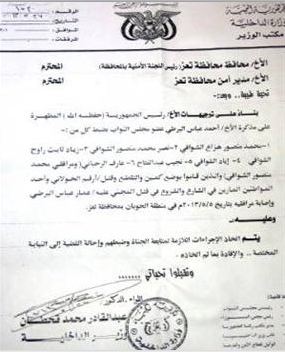 وزارة الداخلية
مكتب الوزير
الأخ/ محافظ محافظة تعز (رئيس اللجنة الأمنية بالمحافظة) المحترم
الأخ/ مدير أمن محافظة تعز المحترم
تحية طيبة.. وبعد
بناءً على توجيهات الأخ/ رئيس الجمهورية (حفظه الله) المظهرة
على مذكرة الأخ/ أحمد عباس البرطي عضو مجلس النواب بضبط كل من:-
١-محمد منصور هزاع الشوافي ٢-نصر محمد منصور الشوافي ٣-زياد ثابت راوح
الشوافي ٤-إياد الشوافي ٥-نجيب عبدالفتاح ٦-عارف الرحباني (ومرافقي محمد
منصور الشوافي) والذين قاموا بوضع كمين والتقطيع وقتل/
المواطنين المارين في الشارع والشروع في قتل المجني عليه/ عمار عباس البرطي
وإصابة مرافقيه بتاريخ ٢٠١٣/٥/٥م في منطقة الحوبان بمحافظة تعز.
وعليه..
يتم اتخاذ الإجراءات اللازمة لمتابعة الجناة وضبطهم وإحالة القضية إلى النيابة
المختصة.. والإفادة بما تم اتخاذه.
وتقبلوا تحياتي،،،،،،
اللواء. الدكتور
عبدالقادر محمد قحطان
وزير الداخلية